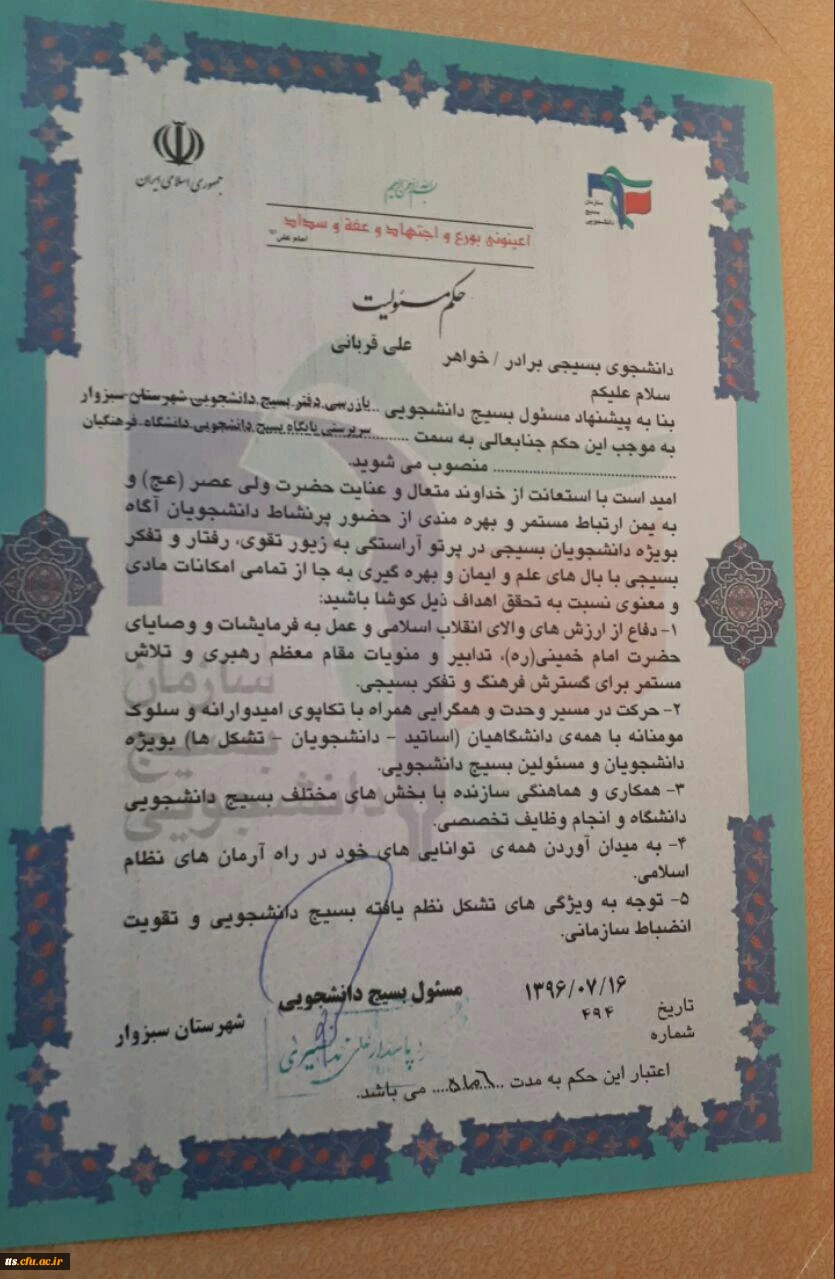 جمهوری اسلامی ایران
بسم الله الرحمن الرحیم
سازمان
بسیج
دانشجویی
اعینونی بورع و اجتهاد و عفة و سداد
امام علی
حکم مسئولیت
دانشجوی بسیجی برادر / خواهر علی قربانی
سلام علیکم
بنا به پیشنهاد مسئول بسیج دانشجویی ..بازرسی دفتر بسیج دانشجویی شهرستان سبزوار
به موجب این حکم جنابعالی به سمت .......... سرپرستی پایگاه بسیج دانشجویی دانشگاه فرهنگیان
.......................................... منصوب می شوید.
امید است با استعانت از خداوند متعال و عنایت حضرت ولی عصر (عج) و
به یمن ارتباط مستمر و بهره مندی از حضور پرنشاط دانشجویان آگاه
بویژه دانشجویان بسیجی در پرتو آراستگی به زیور تقوی، رفتار و تفکر
بسیجی با بال های علم و ایمان و بهره گیری به جا از تمامی امکانات مادی
و معنوی نسبت به تحقق اهداف ذیل کوشا باشید:
۱- دفاع از ارزش های والای انقلاب اسلامی و عمل به فرمایشات و وصایای
حضرت امام خمینی(ره)، تدابیر و منویات مقام معظم رهبری و تلاش
مستمر برای گسترش فرهنگ و تفکر بسیجی.
۲- حرکت در مسیر وحدت و همگرایی همراه با تکاپوی امیدوارانه و سلوک
مومنانه با همه‌ی دانشگاهیان (اساتید - دانشجویان - تشکل ها) بویژه
دانشجویان و مسئولین بسیج دانشجویی.
۳- همکاری و هماهنگی سازنده با بخش های مختلف بسیج دانشجویی
دانشگاه و انجام وظایف تخصصی.
۴- به میدان آوردن همه‌ی توانایی های خود در راه آرمان های نظام
اسلامی.
۵- توجه به ویژگی های تشکل نظم یافته بسیج دانشجویی و تقویت
انضباط سازمانی.
سازمان
بسیج
دانشجویی
تاریخ ۱۳۹۶/۰۷/۱۶
شماره ۴۹۴
مسئول بسیج دانشجویی
شهرستان سبزوار
پاسدار علی
اعتبار این حکم به مدت ........ می باشد.
tts.cfu.ac.ir